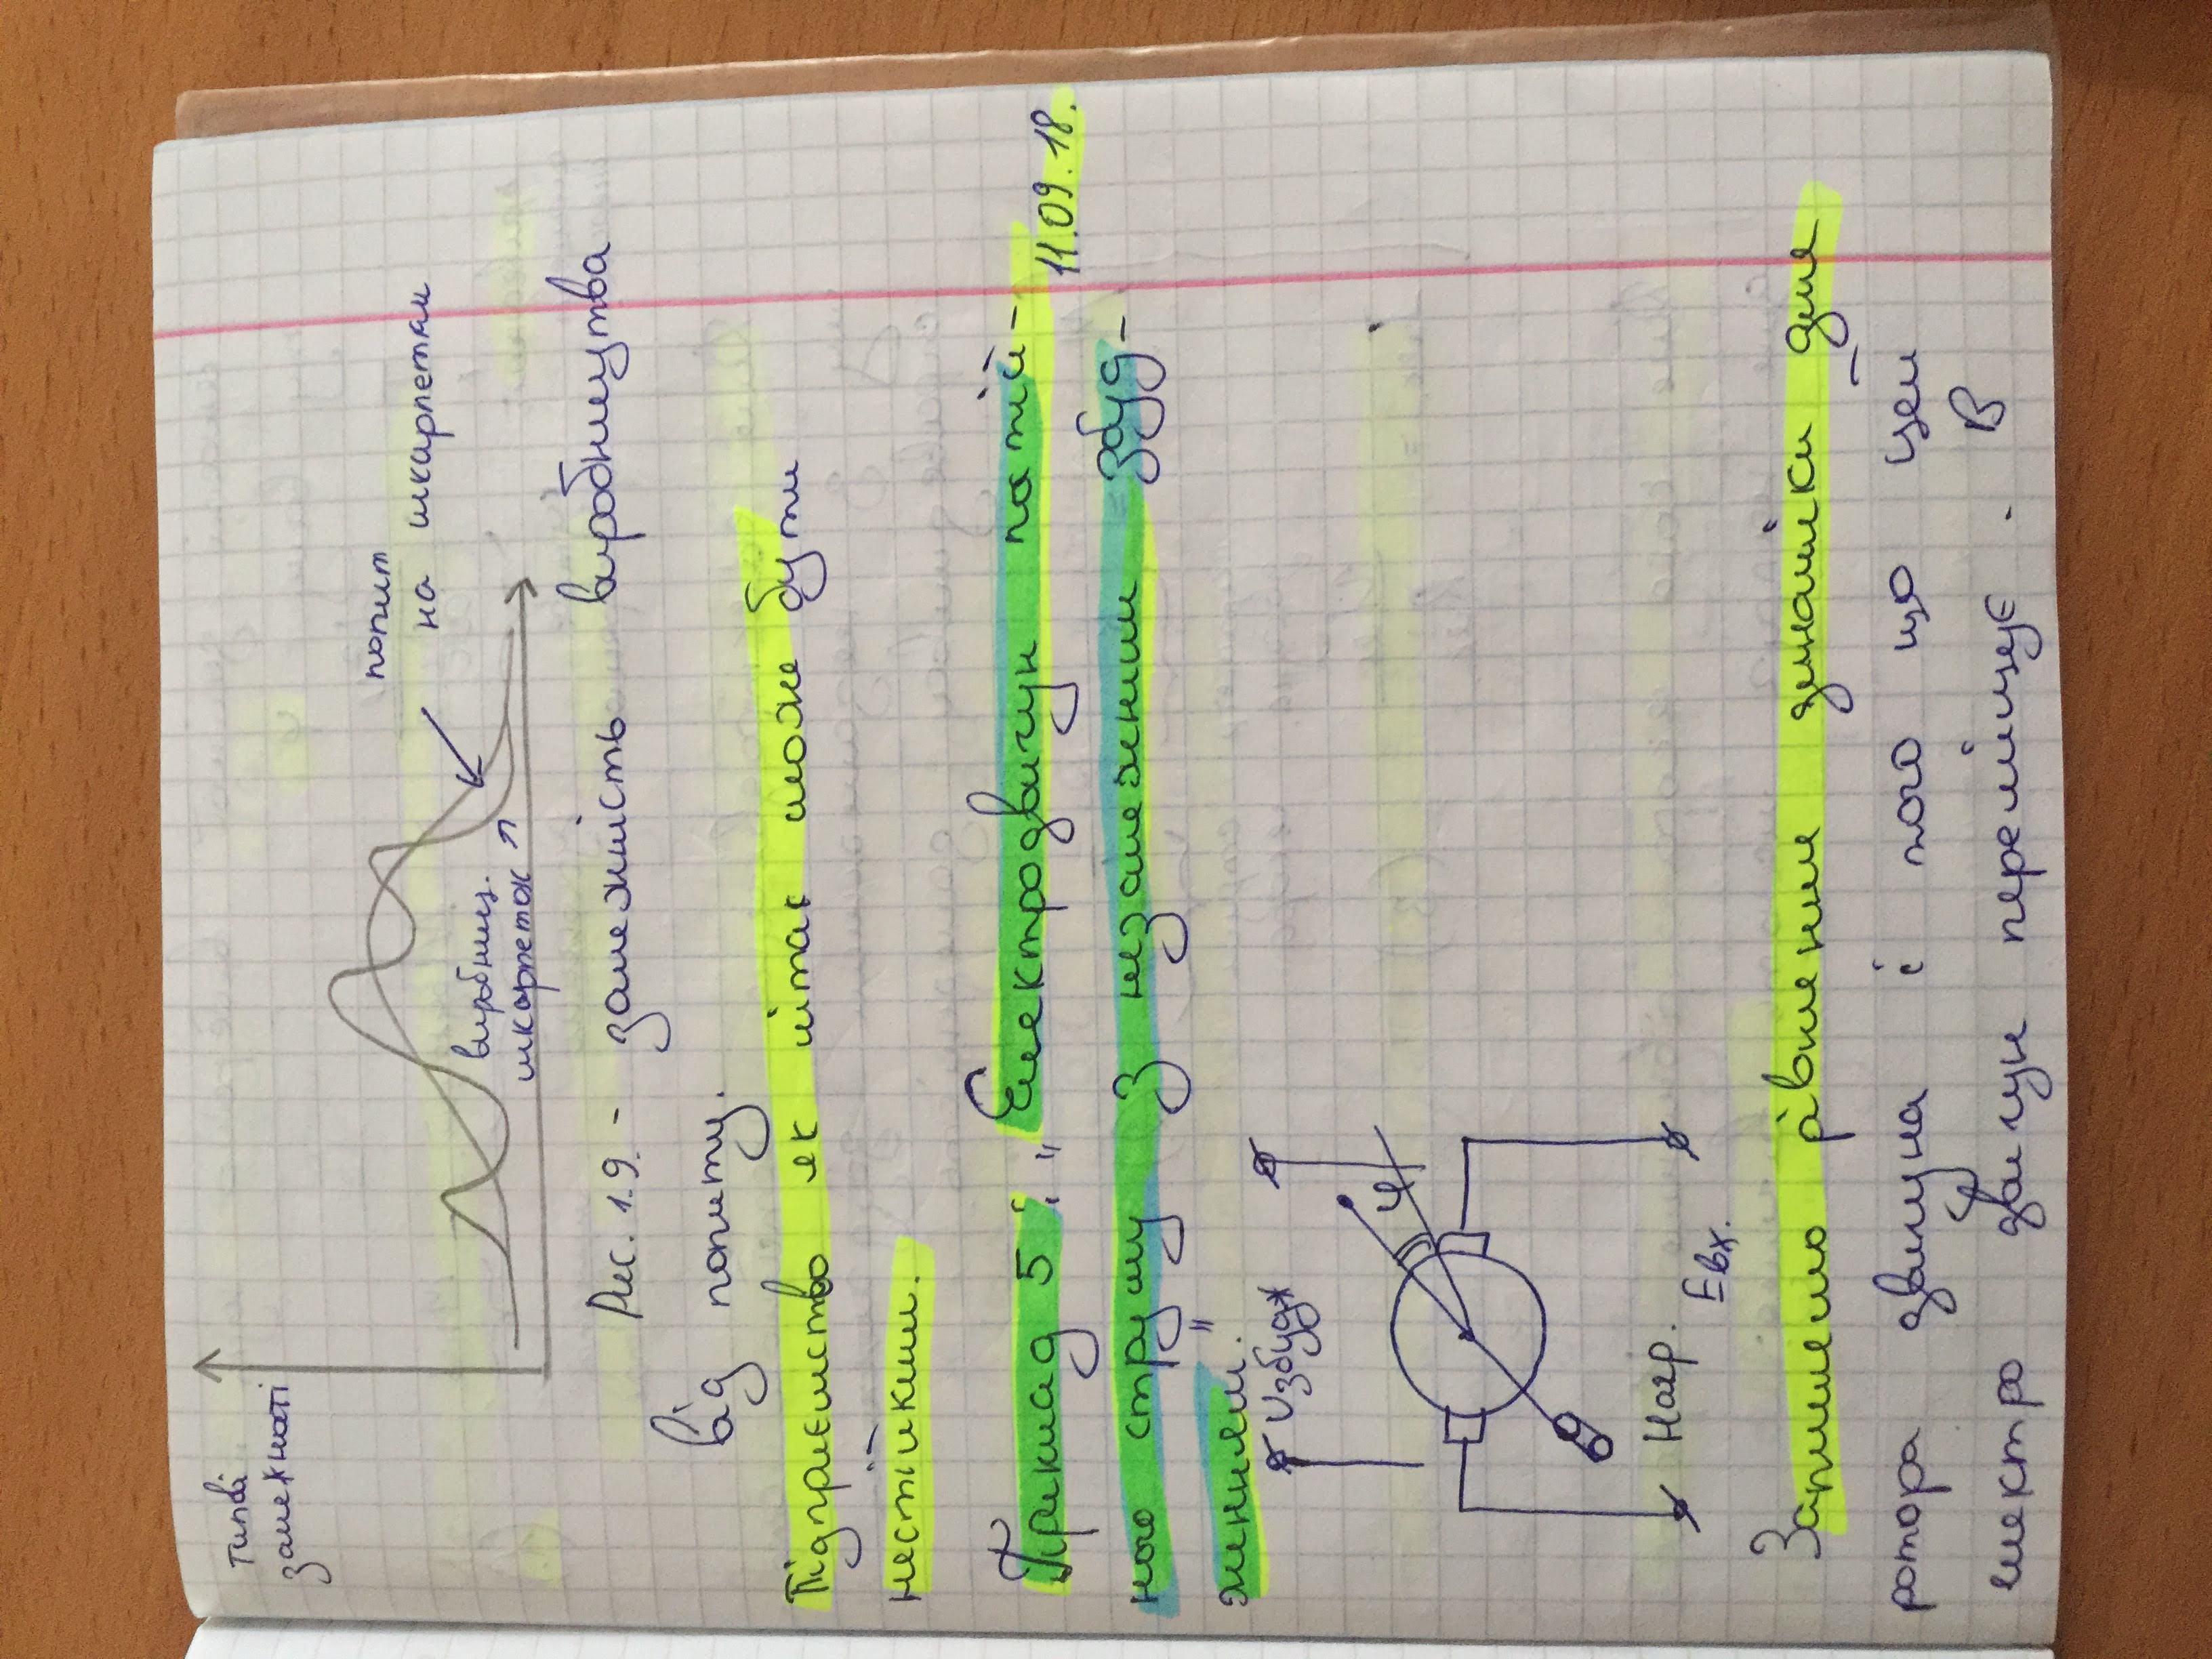 типові
залежності
попит
на шкарпетки
виробниц.
шкарпеток
Рис. 1.9. - залежність виробництва
від попиту.
Підприємство як літак може бути
нестійким.
Приклад 5: "Електродвигун постій-
11.09.18.
ного струму з незалежним збуд-
женням."
Uзбудж
φ
Нагр.
Eвх.
Запишемо рівняння динаміки для
ротора двигуна і того що цей
електро двигун переміщує. В